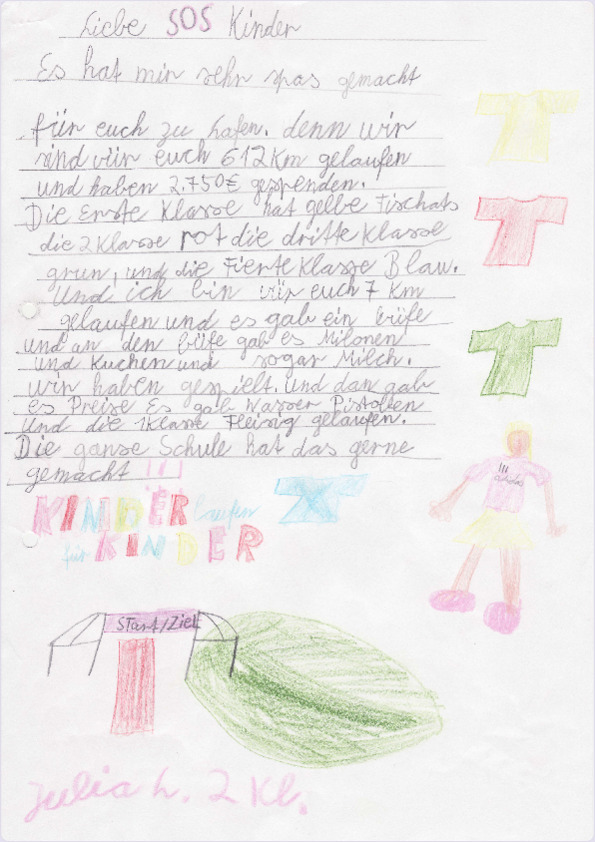 Liebe SOS Kinder
Es hat mir sehr spas gemacht
für euch zu hafen. denn wir
sind vür euch 612 Km gelaufen
und haben 2.750€ gespenden.
Die Erste Klasse hat gelbe Tischats
die 2 Klasse rot die dritte Klasse
grün, und die Fierte Klasse Blau.
Und ich bin vür euch 7 Km
gelaufen und es gab ein büfe
und an den büfe gab es Milonen
und Kuchen und sogar Milch.
wir haben gespielt. und dan gab
es Preise Es gab Wasser Pistollen
und die 1 Klasse Fleisig gelaufen.
Die ganse Schule hat das gerne
gemacht !!!
KINDER laufen
für KINDER
adidas
START/ZIEL
Julia L. 2 Kl.